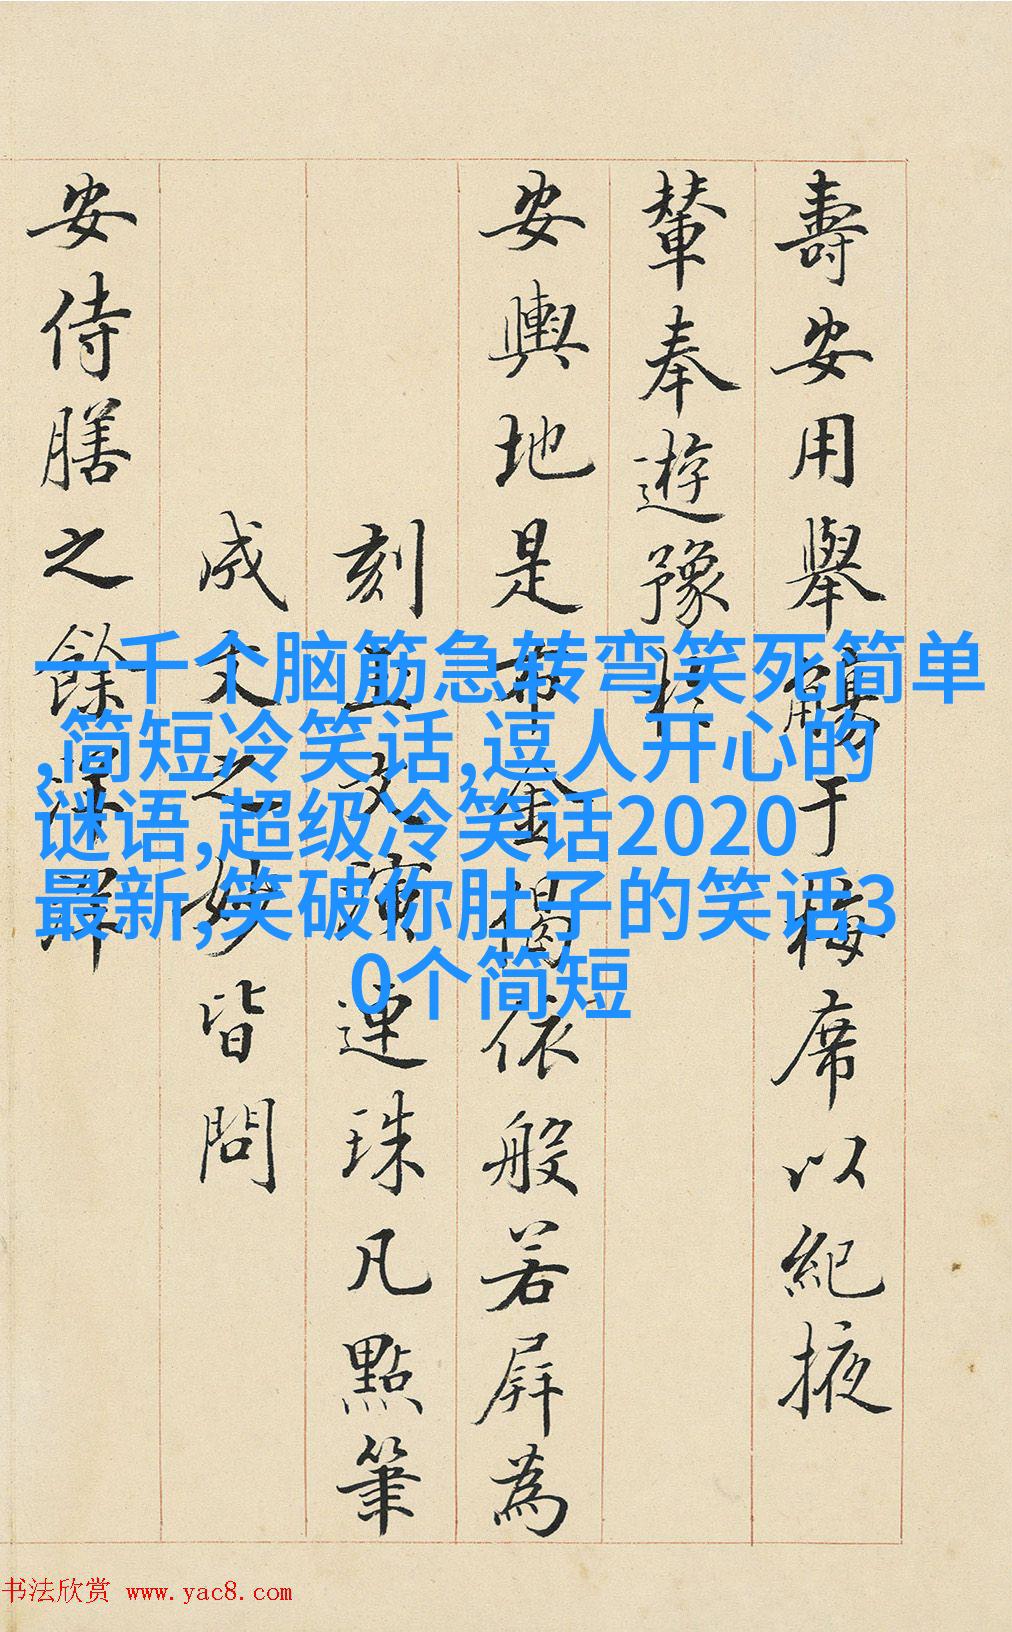 壽安用舉觴于梅席以紀掖
輦奉遊豫
安輿地是布金揭依般若屏為
刻 演連珠凡點筆
成文之妙皆問
安侍膳之餘
一千个脑筋急转弯笑死简单
,简短冷笑话,逗人开心的
谜语,超级冷笑话2020
最新,笑破你肚子的笑话3
0个简短
书法欣赏 www.yac8.com